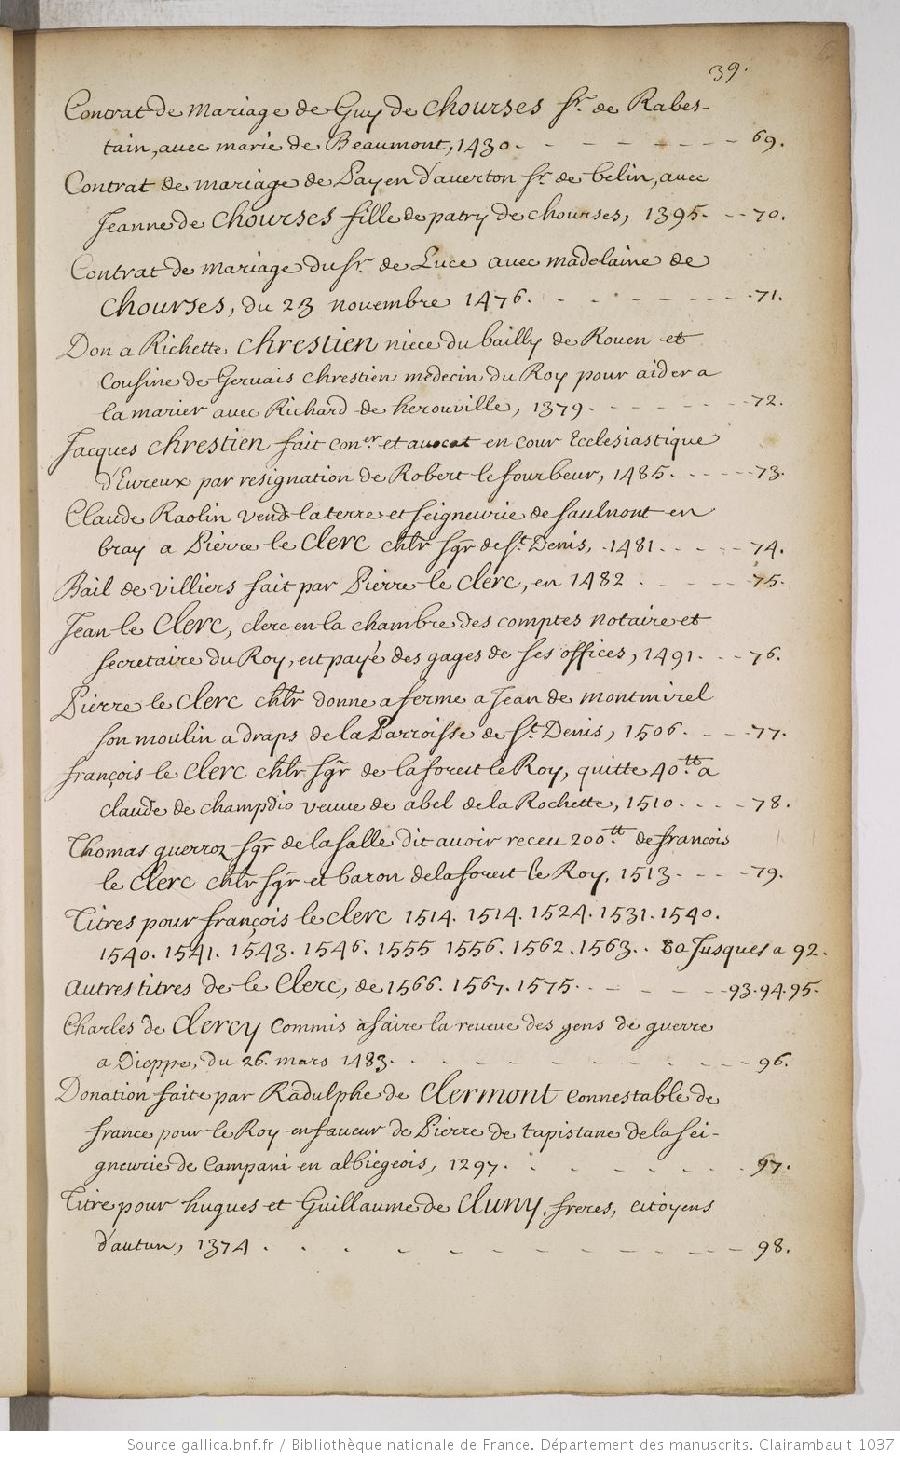 39.
Contrat de mariage de Guy de Chourses sr. de Rabes-
tain, avec marie de Beaumont, 1430. - - - - - - - 69.
Contrat de mariage de Payen d'averton sr. de belin, avec
Jeanne de Chourses fille de patry de chourses, 1395. - - 70.
Contrat de mariage du sr. de Luce avec madelaine de
Chourses, du 23 novembre 1476. - - - - - - - 71.
Don a Richette, Chrestien niece du bailly de Rouen et
Cousine de Gervais Chrestien medecin du Roy pour aider a
la marier avec Richard de herouville, 1379. - - - - - 72.
Jacques Chrestien fait coner et avocat en cour Ecclesiastique
d'Eureux par resignation de Robert le fourbeur, 1485. - - - - 73.
Claude Raolin vend la terre et seigneurie de faulmont en
bray a Pierre le Clerc chlr sgr de st. Denis, 1481. - - - - 74.
Bail de villiers fait par Pierre le Clerc, en 1482 . - - - - 75.
Jean le Clerc, clerc en la chambre des comptes notaire et
secretaire du Roy, est payé des gages de ses offices, 1491. - - 76.
Pierre le Clerc chlr donne a ferme a Jean de montmirel
son moulin a draps de la Parroisse de st. Denis, 1506. - - - 77.
françois le Clerc chlr sgr de la forest le Roy, quitte 40.tt a
claude de champdio veuve de abel de la Rochette, 1510. - - - 78.
Thomas querroz sgr de la salle dit avoir receu 200.tt de francois
le Clerc chlr sgr et baron de la forest le Roy, 1513. - - - 79.
Titres pour françois le clerc 1514. 1514. 1524. 1531. 1540.
1540. 1541. 1543. 1546. 1555 1556. 1562. 1563. . 80 Jusques a 92.
Autres titres de le Clerc, de 1566. 1567. 1575. - - - - - 93. 94. 95.
Charles de Clercy Commis a faire la reveue des gens de guerre
a Dieppe, du 26. mars 1483. - - - - - - - - 96.
Donation faite par Radulphe de Clermont Connestable de
france pour le Roy en faveur de Pierre de tapistane de la sei-
gneurie de Campani en albiegeois, 1297. - - - - - - 97.
Titre pour hugues et Guillaume de Cluny, freres, citoyens
d'autun, 1374 . . . . - - - - - - - - 98.
Source gallica.bnf.fr / Bibliothèque nationale de France. Département des manuscrits. Clairambaut 1037